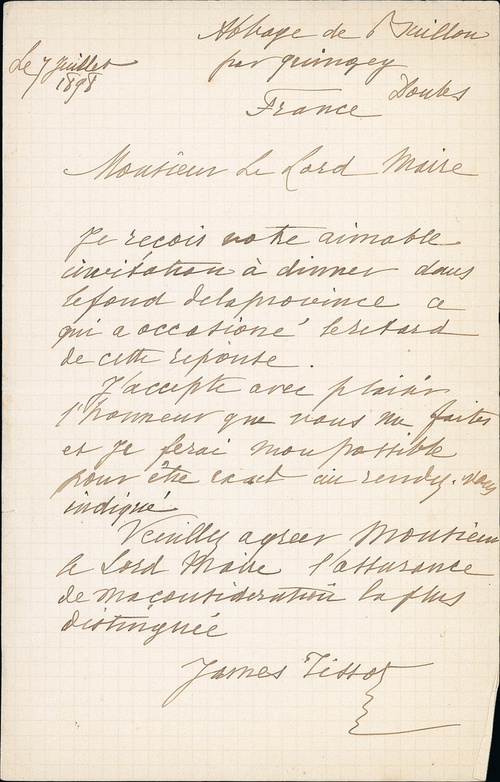 Abbaye de Buillon
Le 7 Juillet
1898
par quingey
Doubs
France
Monsieur Le Lord Maire
Je reçois votre aimable
invitation à dinner dans
le fond de la province ce
qui a occasioné le retard
de cette réponse.
J'accepte avec plaisir
l'honneur que vous me faites
et je ferai mon possible
pour être exact au rendez-vous
indiqué
Veuillez agréer Monsieur
le Lord Maire l'assurance
de ma considération la plus
distinguée
James Tissot